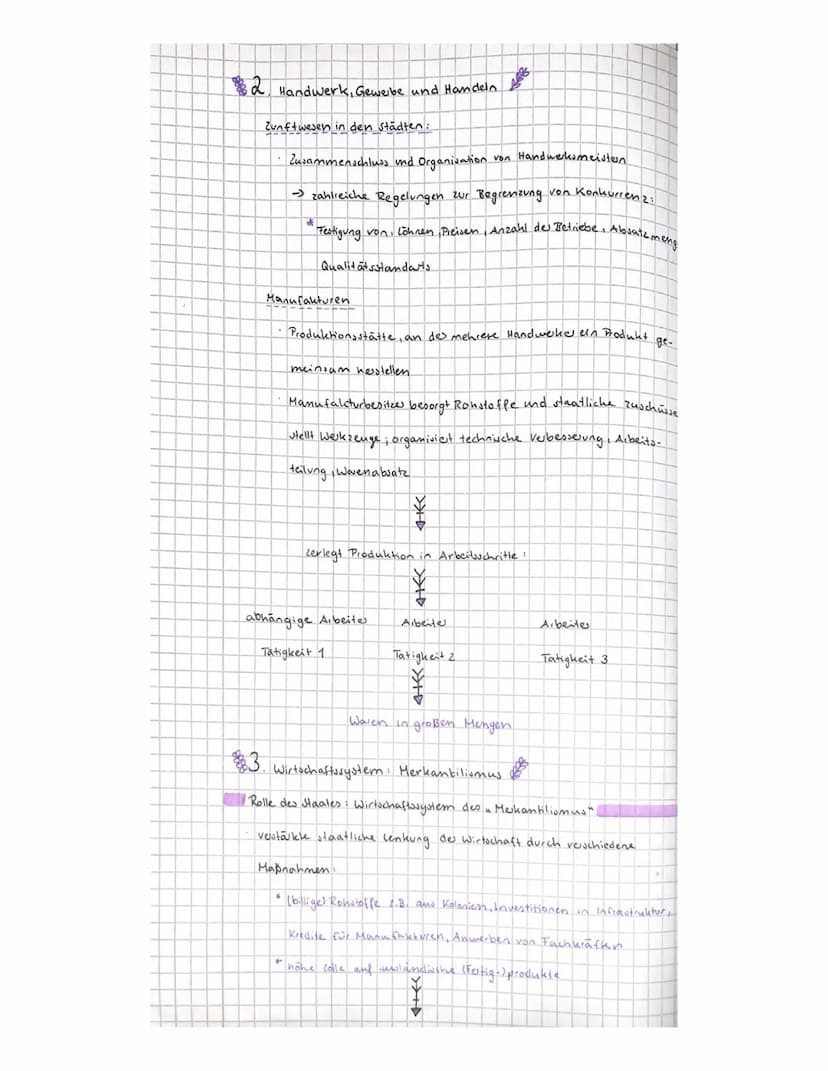 2. Handwerk, Gewerbe und Handeln
Zunftwesen in den Städten:
· Zusammenschluss und Organisation von Handwerksmeistern
→ zahlreiche Regelungen zur Begrenzung von Konkurrenz:
* Festigung von: Löhnen, Preisen, Anzahl der Betriebe, Absatzmeng
Qualitätsstandarts
Manufakturen
· Produktionsstätte, an der mehrere Handwerker ein Produkt ge-
meinsam herstellen
· Manufakturbesitzer besorgt Rohstoffe und staatliche Zuschüsse
stellt Werkzeuge, organisiert technische Verbesserung, Arbeits-
teilung, Warenabsatz
zerlegt Produktion in Arbeitsschritte:
abhängige Arbeiter Arbeiter Arbeiter
Tätigkeit 1 Tätigkeit 2 Tätigkeit 3
Waren in großen Mengen
3. Wirtschaftssystem: Merkantilismus
Rolle des Staates: Wirtschaftssystem des „Merkantilismus"
· verstärkte staatliche Lenkung der Wirtschaft durch verschiedene
Maßnahmen:
* (billige) Rohstoffe z.B. aus Kolonien, Investitionen in Infrastruktur,
Kredite für Manufakturen, Anwerben von Fachkräften
* hohe Zölle auf ausländische (Fertig-)produkte